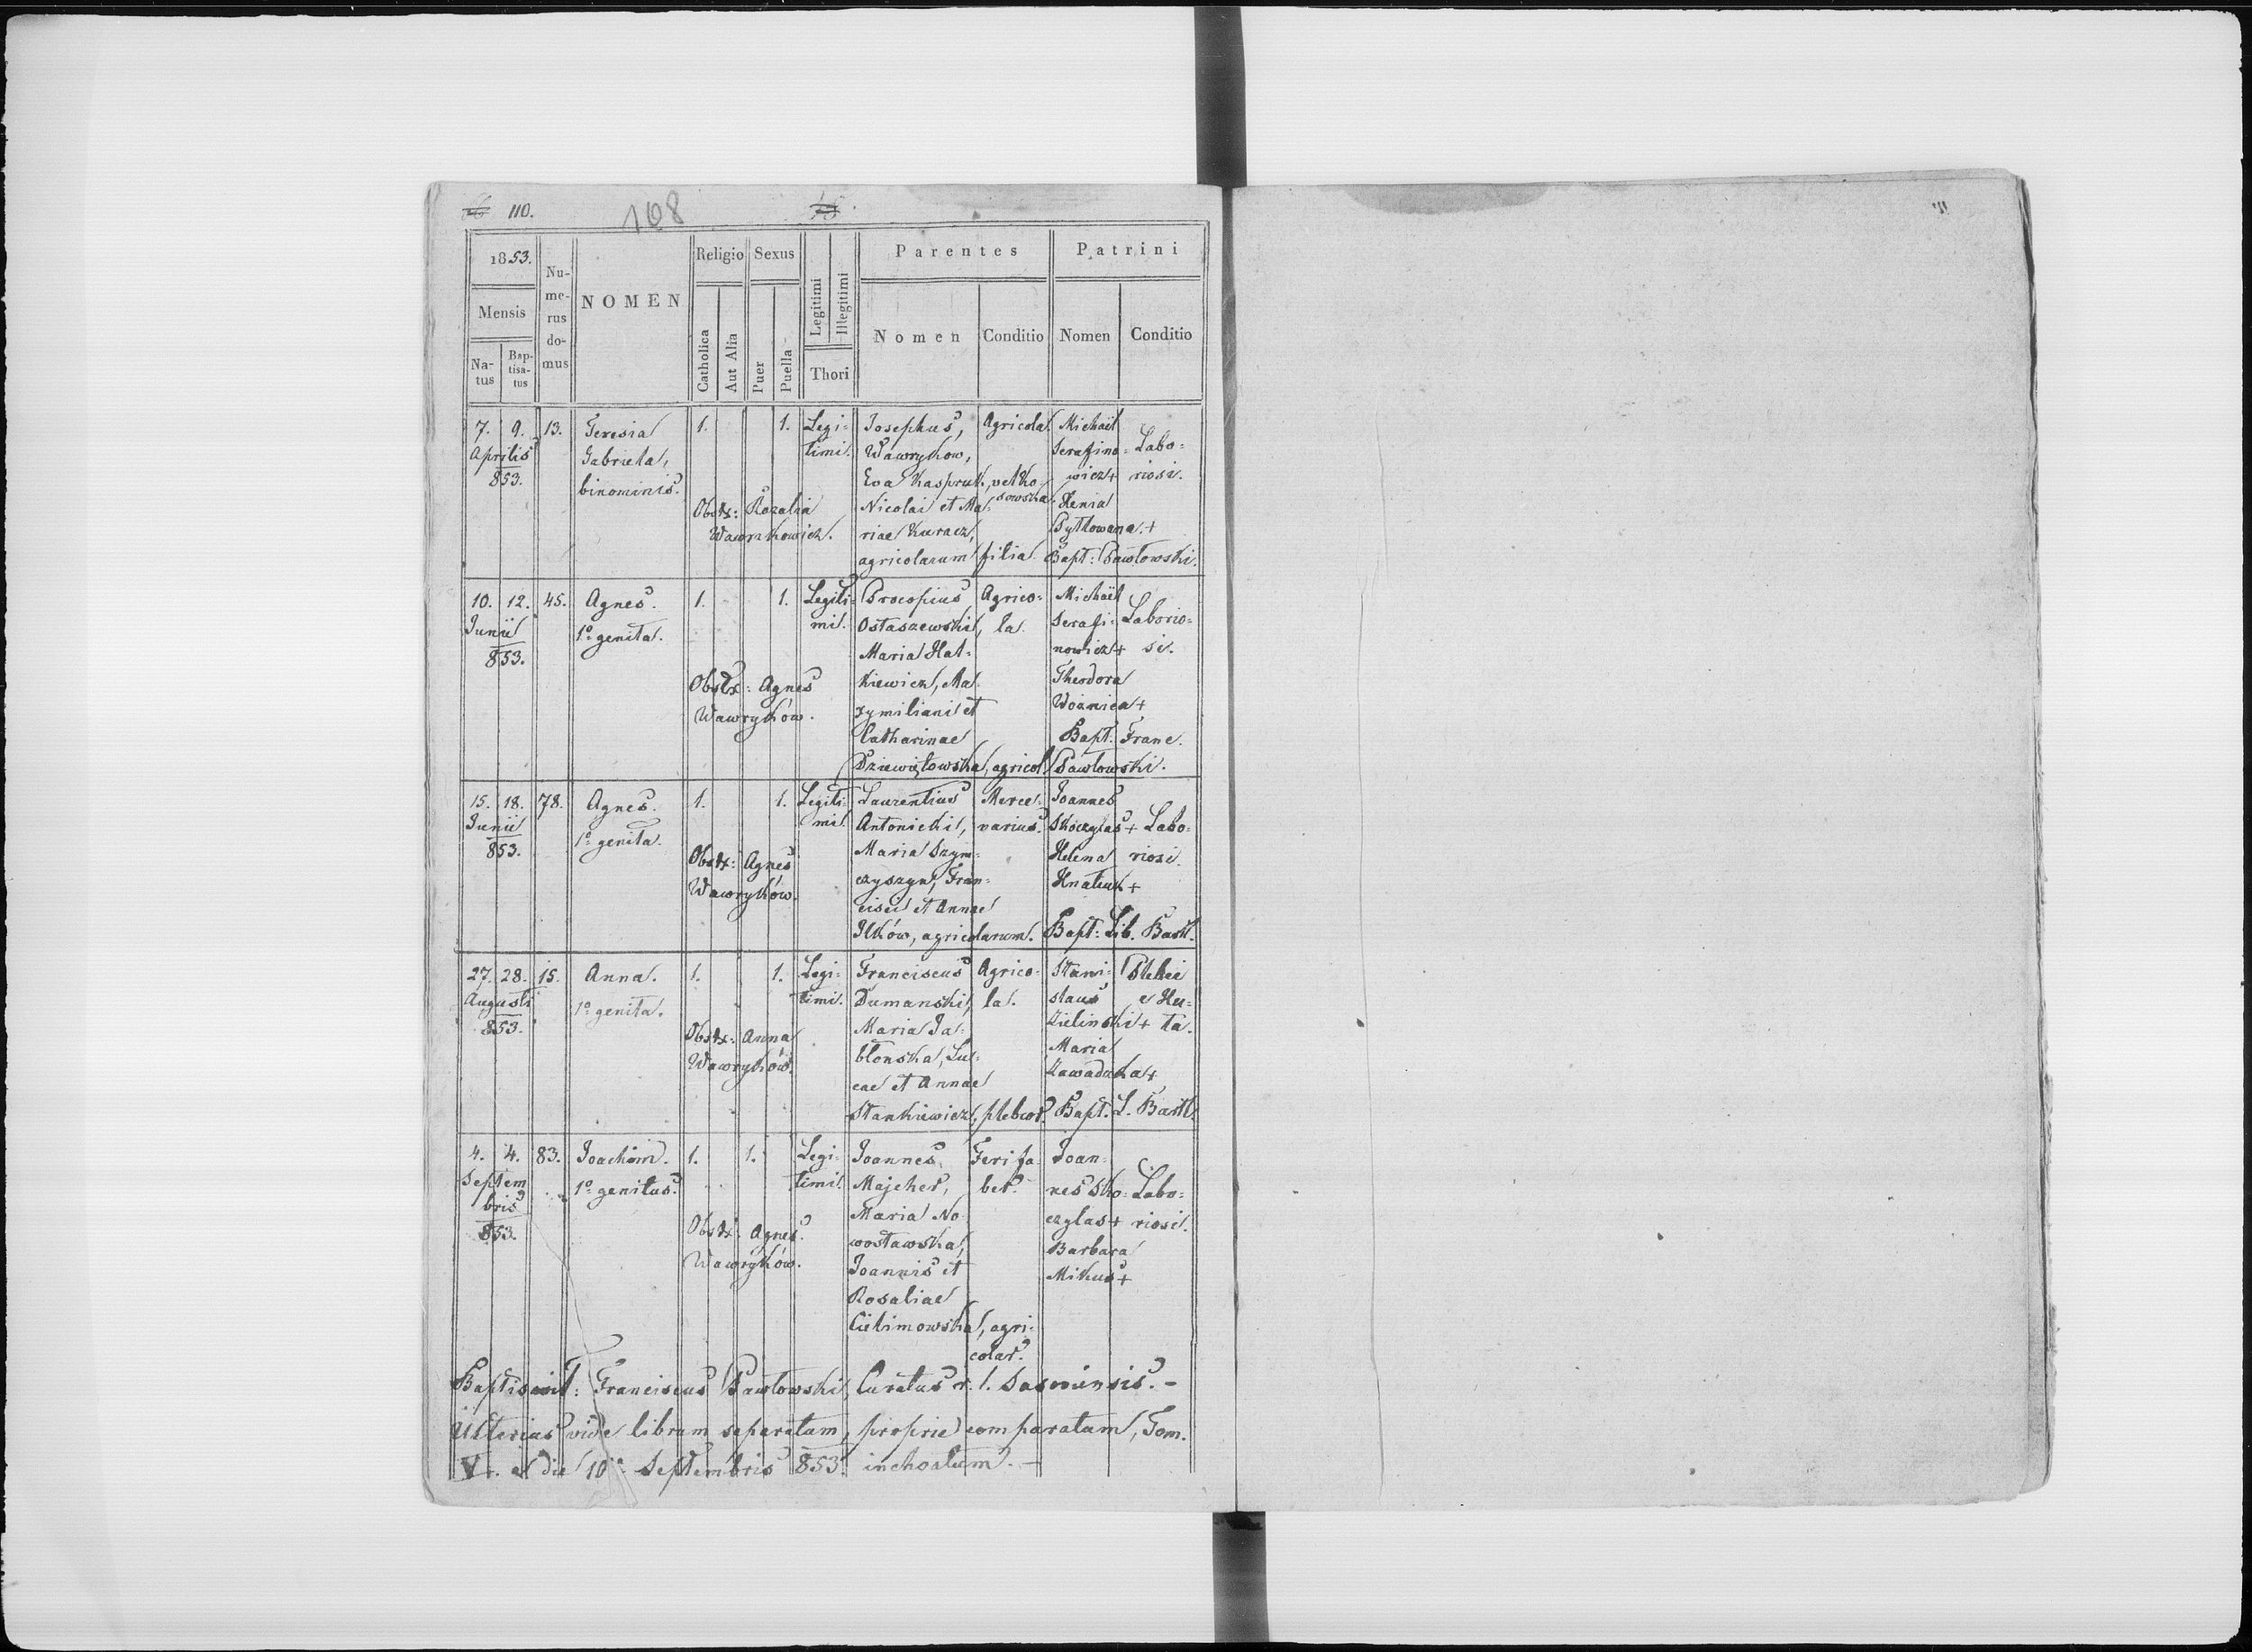 110.
108
1853.
Mensis
Na-
tus
Bap-
tisa-
tus
Nu-
me-
rus
do-
mus
NOMEN
Religio
Catholica
Aut Alia
Sexus
Puer
Puella
Legitimi
Illegitimi
Thori
Parentes
Nomen
Conditio
Patrini
Nomen
Conditio
7. 9. 13.
Aprilis
853.
Teresia
Gabriela,
binominis.
1. 1.
Obstx: Rozalia
Legi-
timi.
Josephus,
Wawrykow,
Eva Kaspruk, vel Ko-
sowska
Nicolai et Ma-
riae Kuracz,
agricolarum filia.
Agricola.
Michaël
Serafino-
wicz+
Xenia
Pytlowana.+
Bapt: Pawlowski.
Labo-
riosi.
10. 12. 45.
Junii
853.
Agnes.
1o genita.
1. 1.
Obstx: Agnes
Wawryków.
Legiti-
mi.
Procopius
Ostaszewski,
Maria Hal-
kiewicz, Ma-
xymiliani et
Catharinae
agricol.
Agrico-
la.
Michaël
Serafi-
nowicz+
Theodora
Bapt: Franc.
Pawlowski.
Laborio-
si.
15. 18. 78.
Junii
853.
Agnes.
1o genita.
1. 1.
Obstx: Agnes
Wawryków.
Legiti-
mi.
Laurentius
Antonicki,
Maria Szym-
czyszyn, Fran-
cisci et Annae
Ilków, agricolarum.
Merce-
narius.
Joannes
Skoczylas+
Helena
Hnatiuk+
Bapt: Lib. Bartl.
Labo-
riosi.
27. 28. 15.
Augusti
853.
Anna.
1o genita.
1. 1.
Obstx: Anna
Wawryków.
Legi-
timi.
Franciscus
Dumanski,
Maria Ja-
blonska, Lu-
cae et Annae
Stankiewicz, plebeor.
Agrico-
la.
Stani-
slaus
Zielinski+
Maria
Zawadzka+
Bapt: L. Bartl.
Plebei
e Hu-
ta.
4. 4. 83.
Septem
bris
853.
Joachim.
1o genitus.
1. 1.
Obstx: Agnes.
Wawryków.
Legi-
timi.
Joannes
Majcher,
Maria No-
woslawska,
Joannis et
Rosaliae
agri-
colar.
Feri fa-
ber.
Joan-
nes Sko-
czylas+
Barbara
Mikus+
Labo-
riosi.
Baptisavit: Franciscus Pawlowski, Curatus r. l. Sasoviensis.-
Ulterius vide librum separatum, proprie comparatum, Tom.
V. a die 10a Septembris 853. inchoatum.-